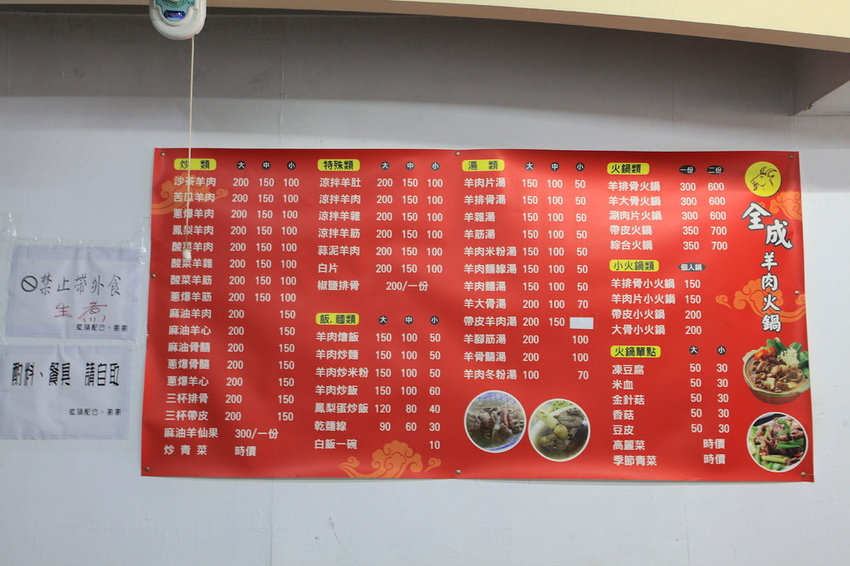 禁止帶外食
生煮
敬請配合,謝謝
酌料、餐具 請自取
敬請配合,謝謝
炒 類 大 中 小
沙茶羊肉 200 150 100
苦瓜羊肉 200 150 100
蔥爆羊肉 200 150 100
鳳梨羊肉 200 150 100
酸菜羊肉 200 150 100
酸菜羊雜 200 150 100
酸菜羊筋 200 150 100
蔥爆羊筋 200 150 100
麻油羊肉 200 150
麻油羊心 200 150
麻油骨髓 200 150
蔥爆骨髓 200 150
蔥爆羊心 200 150
三杯排骨 200 150
三杯帶皮 200 150
麻油羊仙果 300/一份
炒 青 菜 時價
特殊類 大 中 小
涼拌羊肚 200 150 100
涼拌羊肉 200 150 100
涼拌羊雜 200 150 100
涼拌羊筋 200 150 100
蒜泥羊肉 200 150 100
白片 200 150 100
椒鹽排骨 200/一份
飯.麵類 大 中 小
羊肉燴飯 150 100 50
羊肉炒麵 150 100 50
羊肉炒米粉 150 100 50
羊肉炒飯 150 100 60
鳳梨蛋炒飯 120 80 40
乾麵線 90 60 30
白飯一碗 10
湯 類 大 中 小
羊肉片湯 150 100 50
羊排骨湯 150 100 50
羊雜湯 150 100 50
羊筋湯 150 100 50
羊肉米粉湯 150 100 50
羊肉麵線湯 150 100 50
羊肉麵湯 150 100 50
羊大骨湯 200 100 70
帶皮羊肉湯 200 150
羊腳筋湯 200 100
羊骨髓湯 200 100
羊肉冬粉湯 100 70
火鍋類 一份 二份
羊排骨火鍋 300 600
羊大骨火鍋 300 600
涮肉片火鍋 300 600
帶皮火鍋 350 700
綜合火鍋 350 700
小火鍋類 個人鍋
羊排骨小火鍋 150
羊肉片小火鍋 150
帶皮小火鍋 200
大骨小火鍋 200
火鍋單點 大 小
凍豆腐 50 30
米血 50 30
金針菇 50 30
香菇 50 30
豆皮 50 30
高麗菜 時價
季節青菜 時價
全成羊肉火鍋